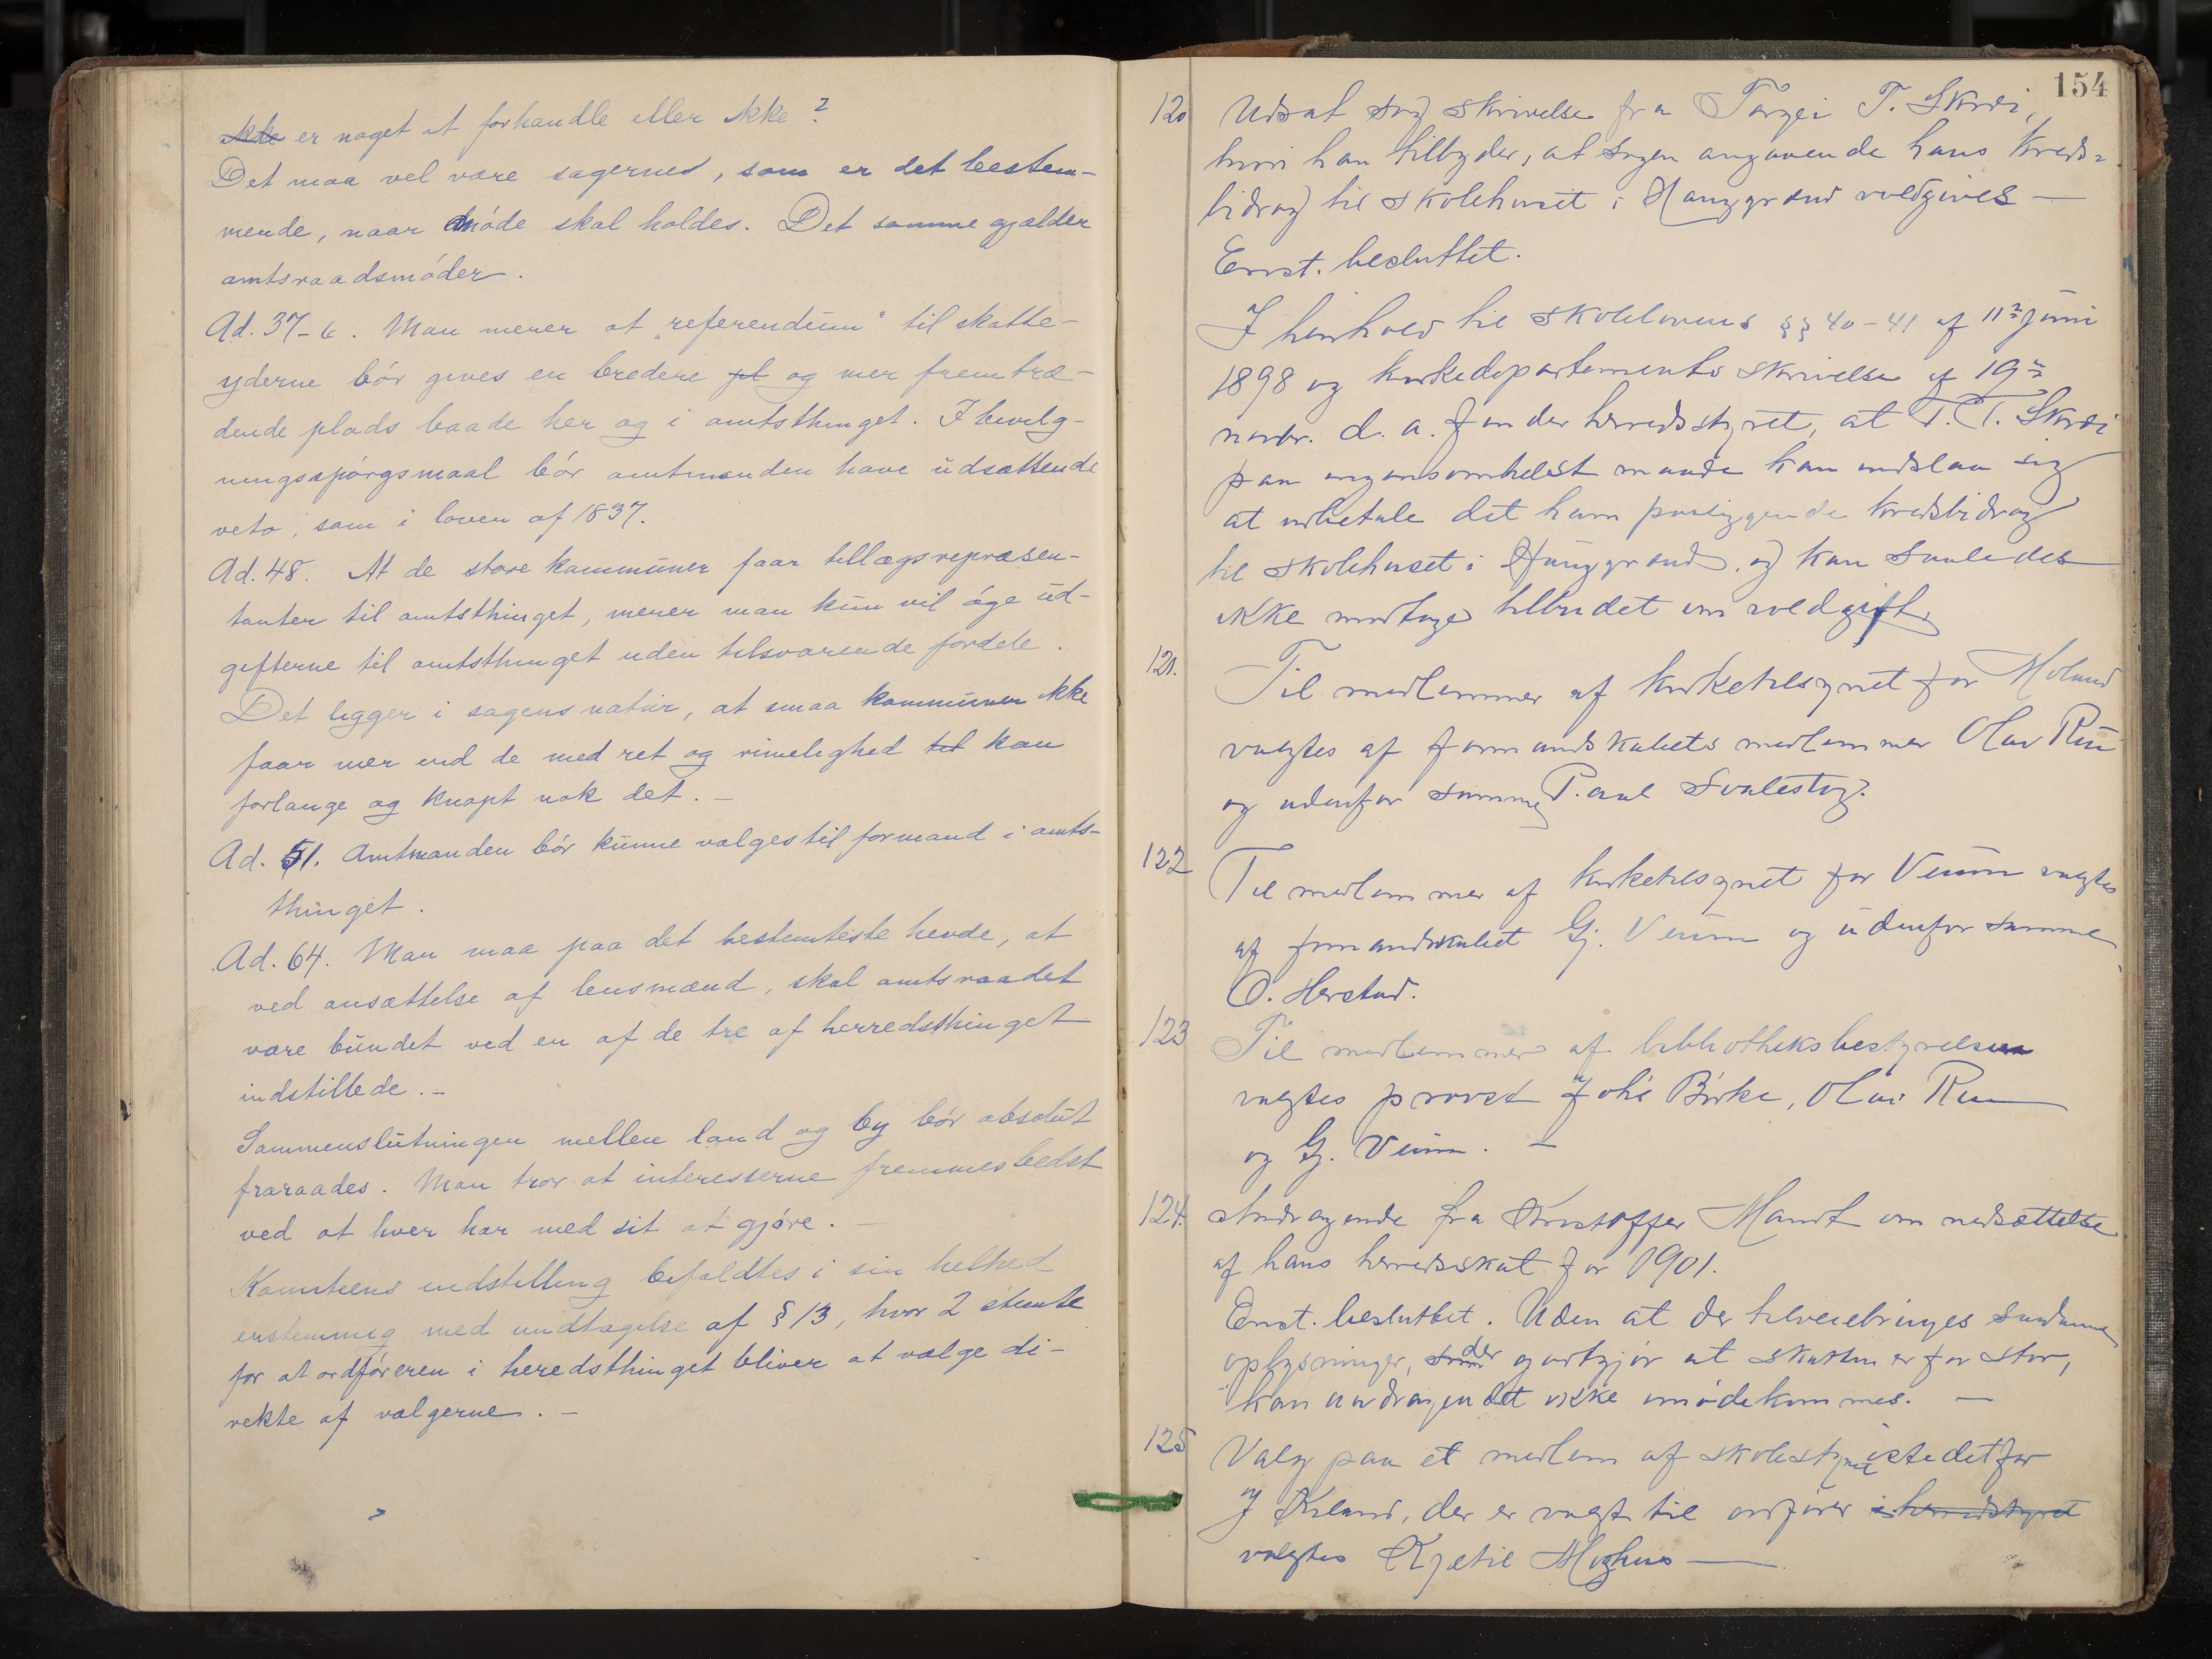 ikke er noget at forhandle eller ikke?
Det maa vel være sagernes, som er det bestem-
mende, naar møde skal holdes. Det samme gjælder
amtsraadsmøder.
Ad. 37-6. Man mener at "referendum" til skatte-
yderne bör gives en bredere pl og mer fremtræ-
dende plads baade her og i amtsthinget. I bevilg-
ningsspörgsmaal bör amtmanden have udsættende
veto, som i loven af 1837.
Ad. 48. At de store kommuner faar tillægsrepræsen-
tanter til amtsthinget, mener man kun vil öge ud-
gifterne til amtsthinget uden tilsvarende fordele.
Det ligger i sagens natur, at smaa kommuner ikke
faar mer end de med ret og rimelighed til kan
forlange og knapt nok det. –
Ad. 51. Amtmanden bör kunne vælges til formand i amts-
thinget.
Ad. 64. Man maa paa det bestemteste hevde, at
ved ansættelse af lensmænd, skal amtsraadet
være bundet ved en af de tre af herredsthinget
indstillede. –
Sammenslutningen mellem land og by bör absolut
fraraades. Man tror at interesserne fremmes bedst
ved at hver har med sit at gjöre. –
Komiteens indstilling bifaldtes i sin helhed
enstemmig med undtagelse af § 13, hvor 2 stemte
for at ordföreren i heredsthinget bliver at vælge di-
rekte af vælgerne. –
154
120 Udsat sag skrivelse fra Torgei T. Skrei,
hvori han tilbyder, at sagen angaaende hans kreds-
bidrag til skolehuset i Hauggrend voldgives –
Enst. besluttet.
I henhold til skolelovens §§ 40-41 af 11te juni
1898 og kirkedepartements skrivelse af 19de
novbr. d. a. finder herredsstyret, at T. T. Skrei
paa ingensomhelst maade kan undslaa sig
at udbetale det ham paaliggende kredsbidrag
til skolehuset i Hauggrend, og kan saaledes
ikke modtage tilbudet om voldgift.
121. Til medlemmer af kirketilsynet for Moland
valgtes af formandskabets medlemmer Olav Rui
og udenfor samme Paul Svalestog.
122 Til medlemmer af kirketilsynet for Veum valgtes
af formandskabet Gj. Veum og udenfor samme
O. Herstad.
123 Til medlemmer af bibliotheksbestyrelsen
valgtes provst Johs Birke, Olav Rui
og Gj. Veum. –
124. Andragende fra Kristoffer Mandt om nedsættelse
af hans herredsskat for 1901.
Enst. besluttet. Uden at der tilveiebringes saadanne
oplysninger, som der godtgjör at skatten er for stor,
kan andragendet ikke imødekommes. –
125 Valg paa et medlem af skolestyret istedetfor
J Kiland, der er valgt til ordfører i herredstyret
valgtes Kjetil Moghus –